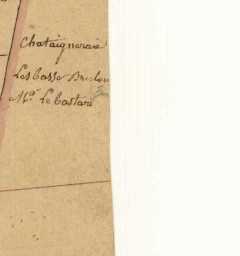 Chataigneraie
Les basse
Mr. Le bastard